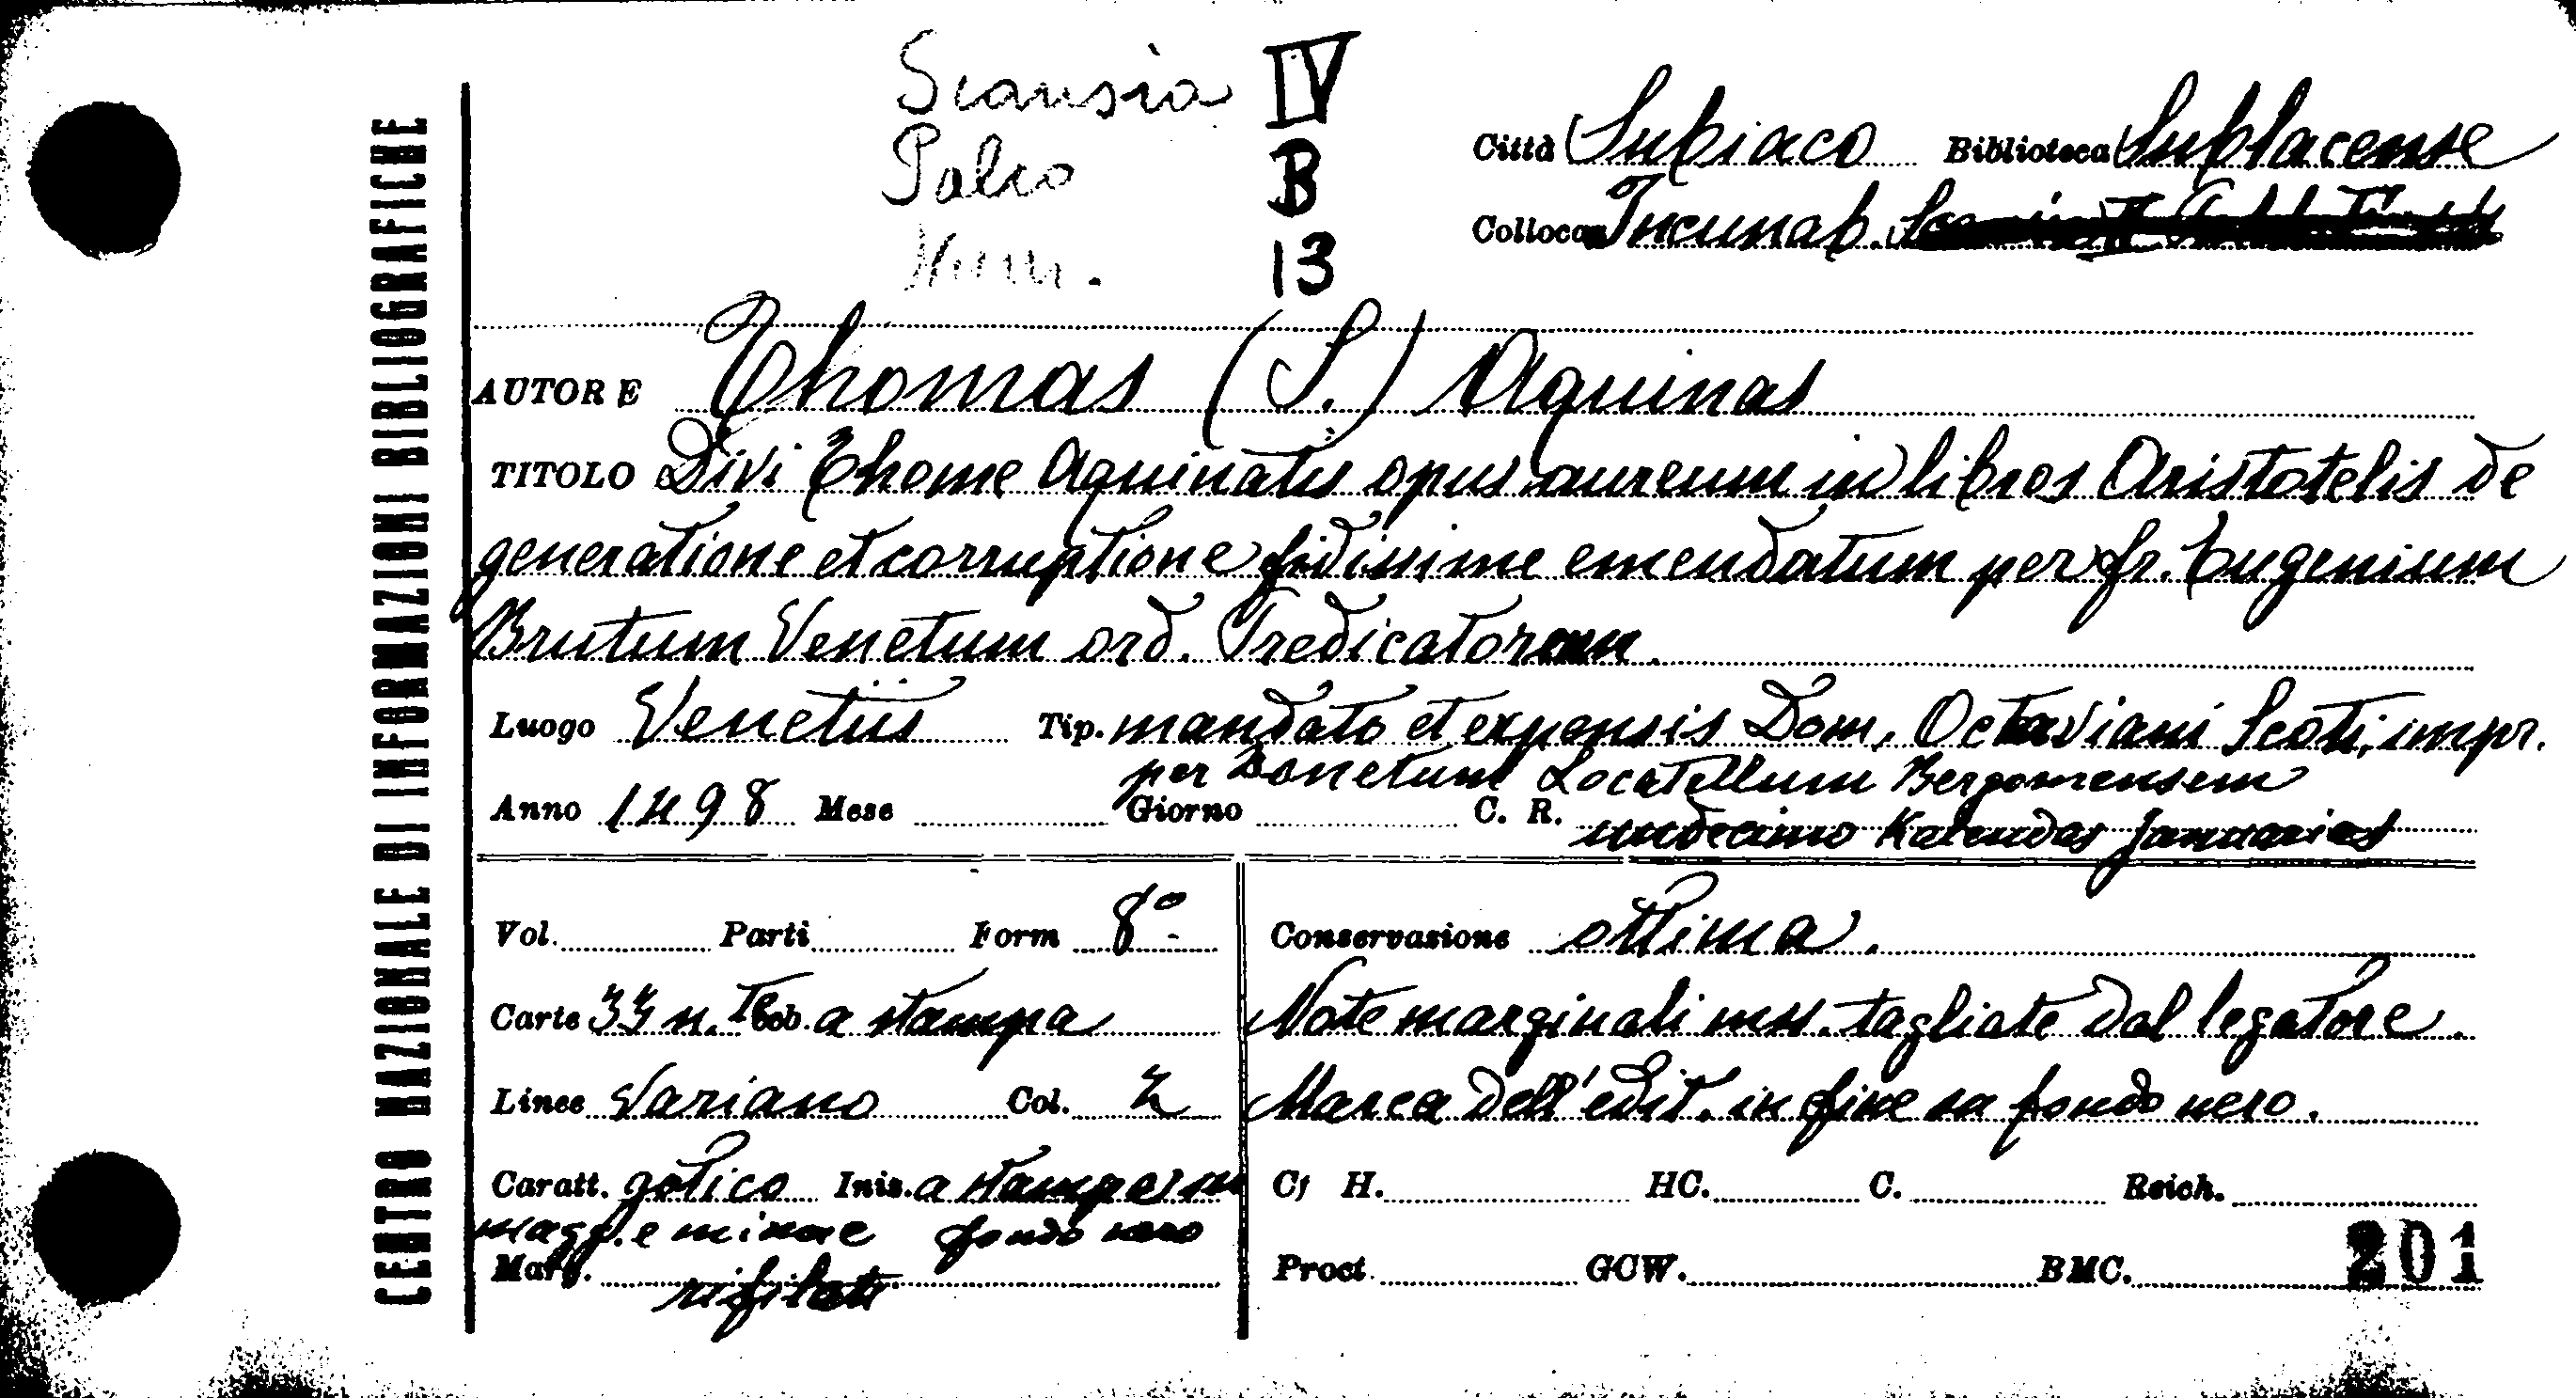 Scansia IV
Palco B
Num. 13
Città Subiaco Biblioteca Sublacense
Collocaz. Incunab.
AUTORE Thomas (S.) Aquinas
TITOLO Divi Thome Aquinatis opus aureum in libros Aristotelis de
generatione et corruptione fidissime emendatum per fr. Eugenium
Brutum Venetum ord. Predicatorum.
Luogo Venetiis Tip. mandato et expensis Dom. Octaviani Scoti, impr.
per Bonetum Locatellum Bergomensem
Anno 1498 Mese Giorno C. R. undecimo Kalendas Januarias
Vol. Parti Form 8º
Conservazione ottima.
Carte 33 n. Tab. a stampa
Note marginali mss. tagliate dal legatore.
Linee Variano Col. 2
Marca dell'edit. in fine su fondo nero.
Caratt. gotico Iniz. a stampa su
magg. e minore fondo nero
Marg. rifilati
Cf H. HC. C. Reich.
Proct. GCW. BMC. 201
CENTRO NAZIONALE DI INFORMAZIONI BIBLIOGRAFICHE